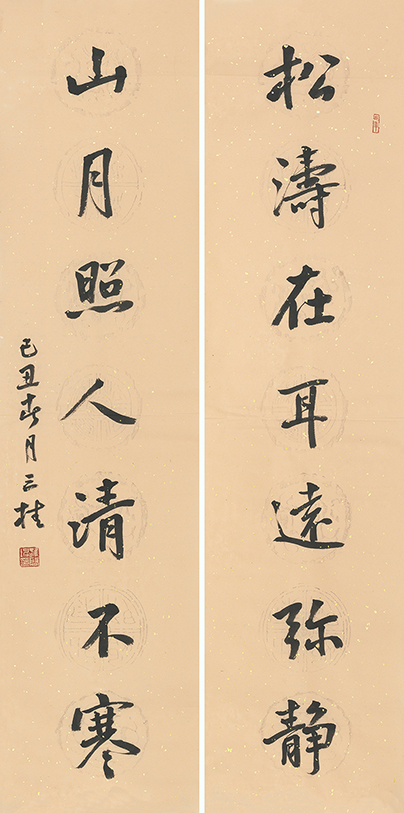 松濤在耳遠弥静
山月照人清不寒
己丑春月三桂